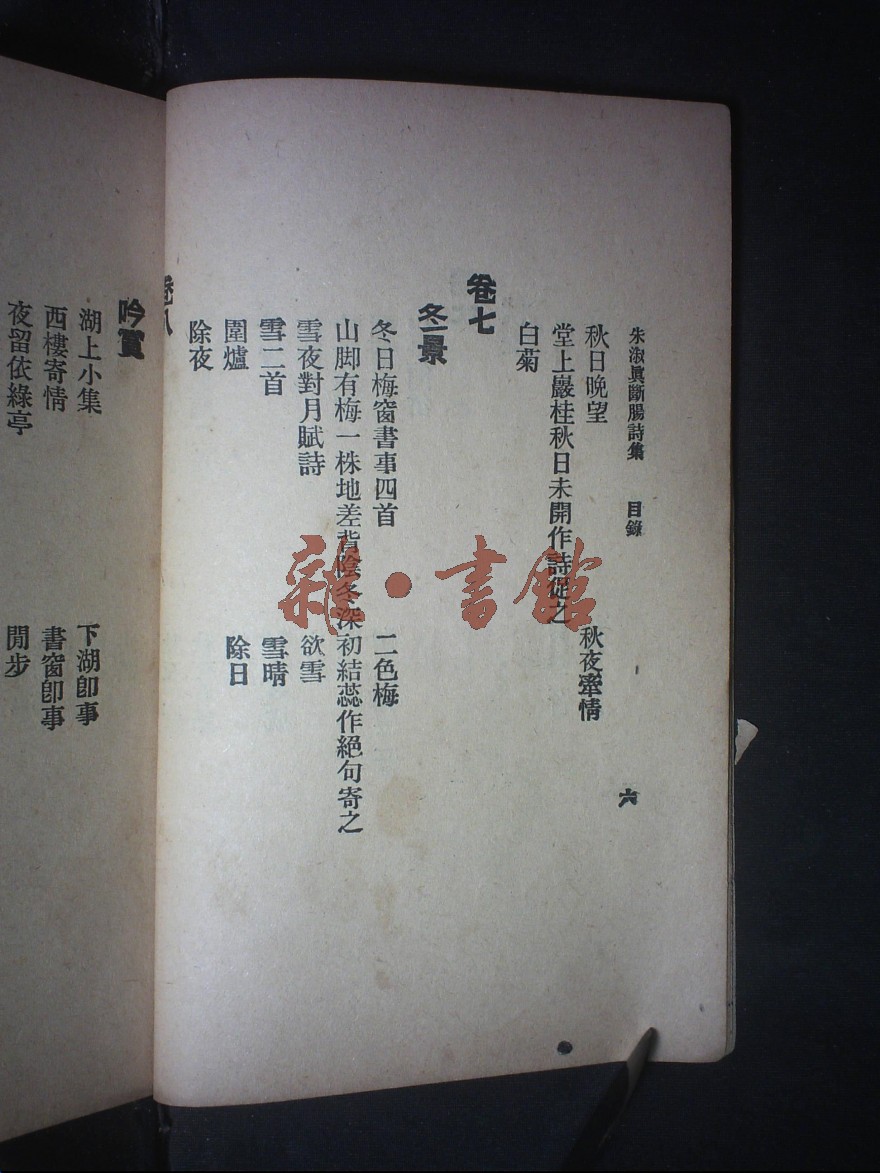 朱淑眞斷腸詩集 目錄 六
秋日晚望 秋夜牽情
堂上巖桂秋日未開作詩促之
白菊
卷七
冬景
冬日梅窗書事四首 二色梅
山脚有梅一株地差背陰冬深初結蕊作絕句寄之
雪夜對月賦詩 欲雪
雪二首 雪晴
圍爐 除日
除夜
卷八
吟賞
湖上小集 下湖卽事
西樓寄情 書窗卽事
夜留依綠亭 閒步
雜·書館